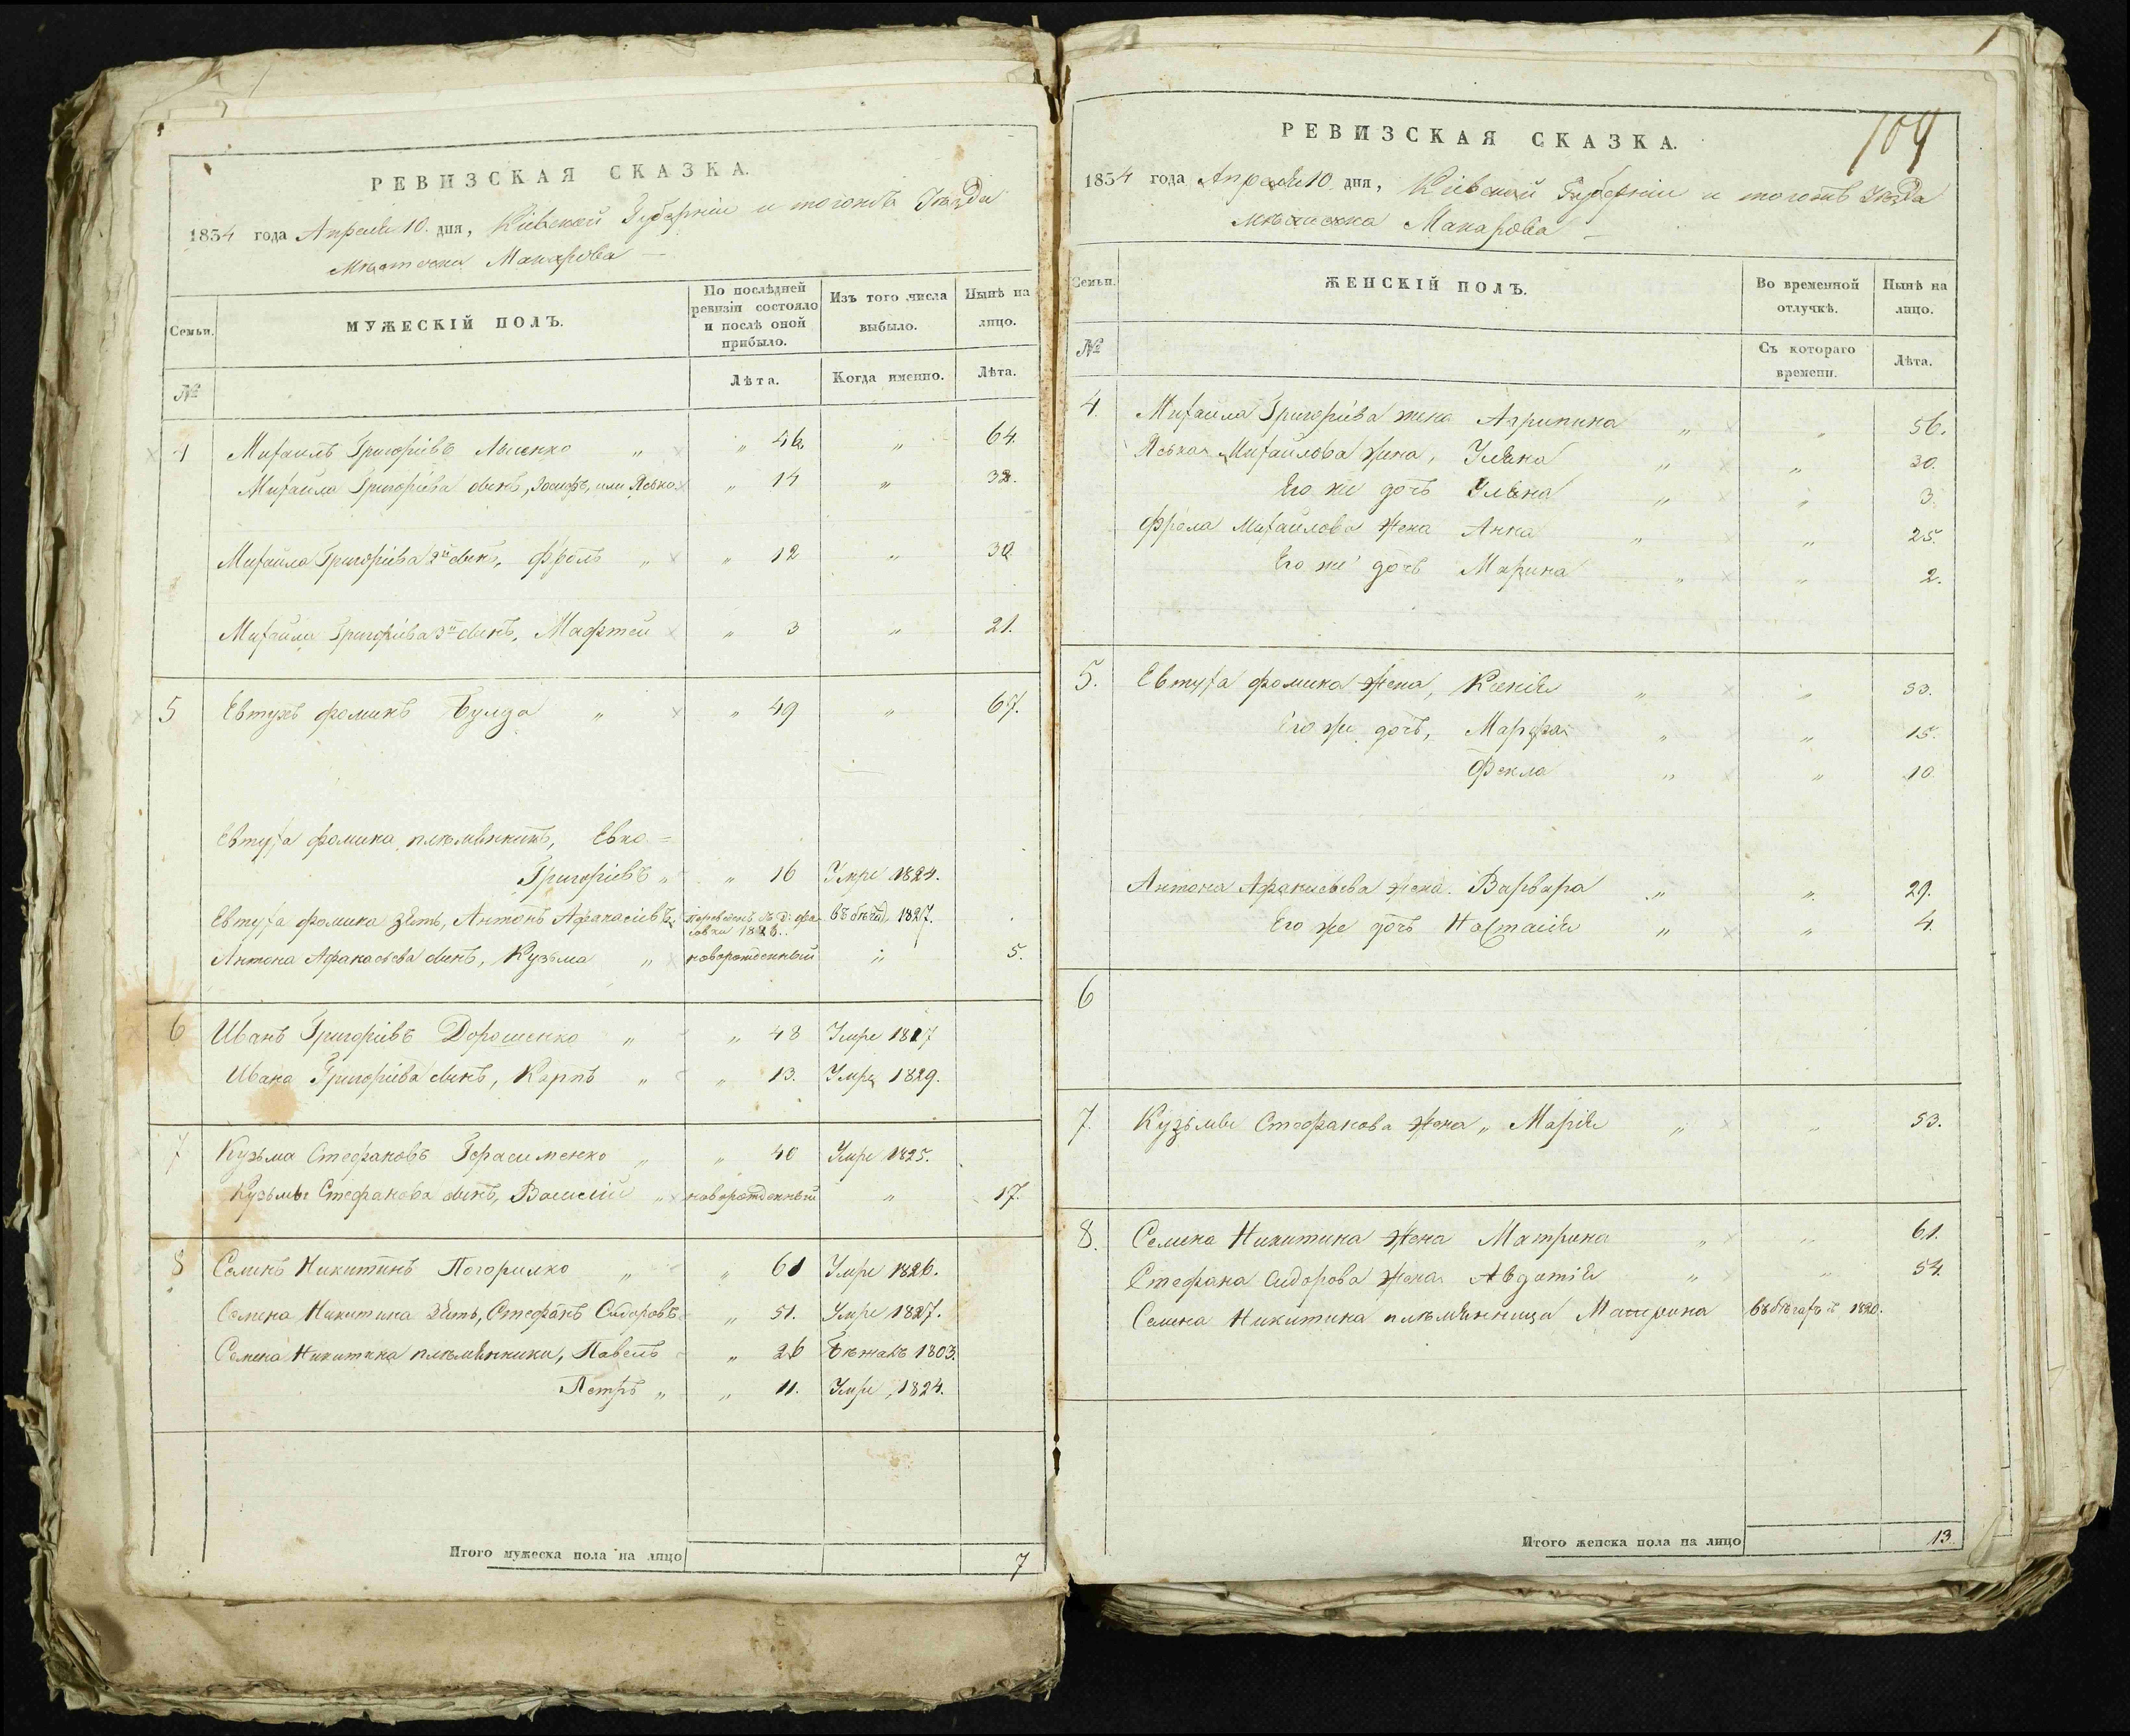 РЕВИЗСКАЯ СКАЗКА.
1834 года Апреля 10. дня, Кіевской Губерніи и тогожъ Уѣзда
Мѣстечка Макарова
Семьи.
МУЖЕСКІЙ ПОЛЪ.
По послѣдней ревизіи состояло и послѣ оной прибыло.
Изъ того числа выбыло.
Нынѣ на лицо.
№
Лѣта.
Когда именно.
Лѣта.
4 Михаилъ Григоріевъ Лысенко " " 46 " 64.
Михаила Григоріева сынъ, Іосифъ, или Яско " 14 " 32.
Михаила Григоріева 2й сынъ, Фролъ " " 12 " 30.
Михаила Григоріева 3й сынъ, Мафтей " 3 " 21.
5 Евтухъ Фоминъ Булда " " 49 " 67.
Евтуха Фомина племянникъ, Евко =
Григоріевъ " " 16 Умре 1824.
Евтуха Фомина зять, Антонъ Афанасіевъ, 1826. въ бѣгах 1827.
Антона Афанасьева сынъ, Кузьма " новорожденный " 5.
6 Иванъ Григоріевъ Дорошенко " " 48 Умре 1827
Ивана Григоріева сынъ, Карпъ " " 13. Умре 1829.
7 Кузьма Стефановъ Герасименко " " 40 Умре 1825.
Кузьмы Стефанова сынъ, Василій " новорожденный " 17.
8 Семенъ Никитинъ Погорилко " " 61 Умре 1826.
Семена Никитина зять, Стефанъ Сидоровъ " 51. Умре 1827.
Семена Никитина племянники, Павелъ " 26 Бѣжалъ 1803.
Петръ " " 11. Умре 1824.
Итого мужеска пола на лицо 7
104
РЕВИЗСКАЯ СКАЗКА.
1834 года Апреля 10. дня, Кіевской Губерніи и тогожъ Уѣзда
Мѣстечка Макарова
Семьи.
ЖЕНСКІЙ ПОЛЪ.
Во временной отлучкѣ.
Нынѣ на лицо.
№
Съ котораго времени.
Лѣта.
4. Михаила Григоріева жена Агрипина " " 56.
Яська Михайлова жена, Уляна " " 30.
Его же дочь Уляна " " 3.
Фрола Михайлова жена Анна " " 25.
Его же дочь Марина " " 2.
5. Евтуха Фомина жена, Ксенія " " 53.
Его же дочь, Марфа " " 15.
Фекла " " 10.
Антона Афанасьева жена. Варвара " " 29.
Его же дочь Настасія " " 4.
6
7. Кузьмы Стефанова жена " Марія " " 53.
8. Семена Никитина жена Матрина " " 61.
Стефана Сидорова жена Авдотія " " 54.
Семена Никитина племянница Матрона въ бѣгахъ съ 1820.
Итого женска пола на лицо 13.